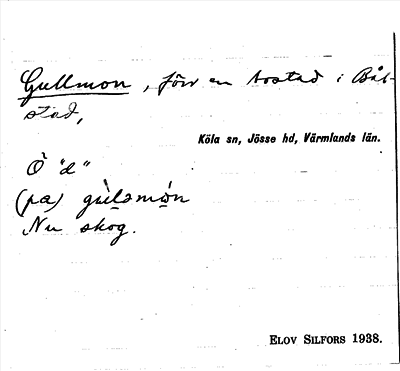 Gullmon, förr en bostad i Bål-
stad,
Köla sn, Jösse hd, Värmlands län.
Ö "d"
(pa) gùləmón
Nu skog.
ELOV SILFORS 1938.